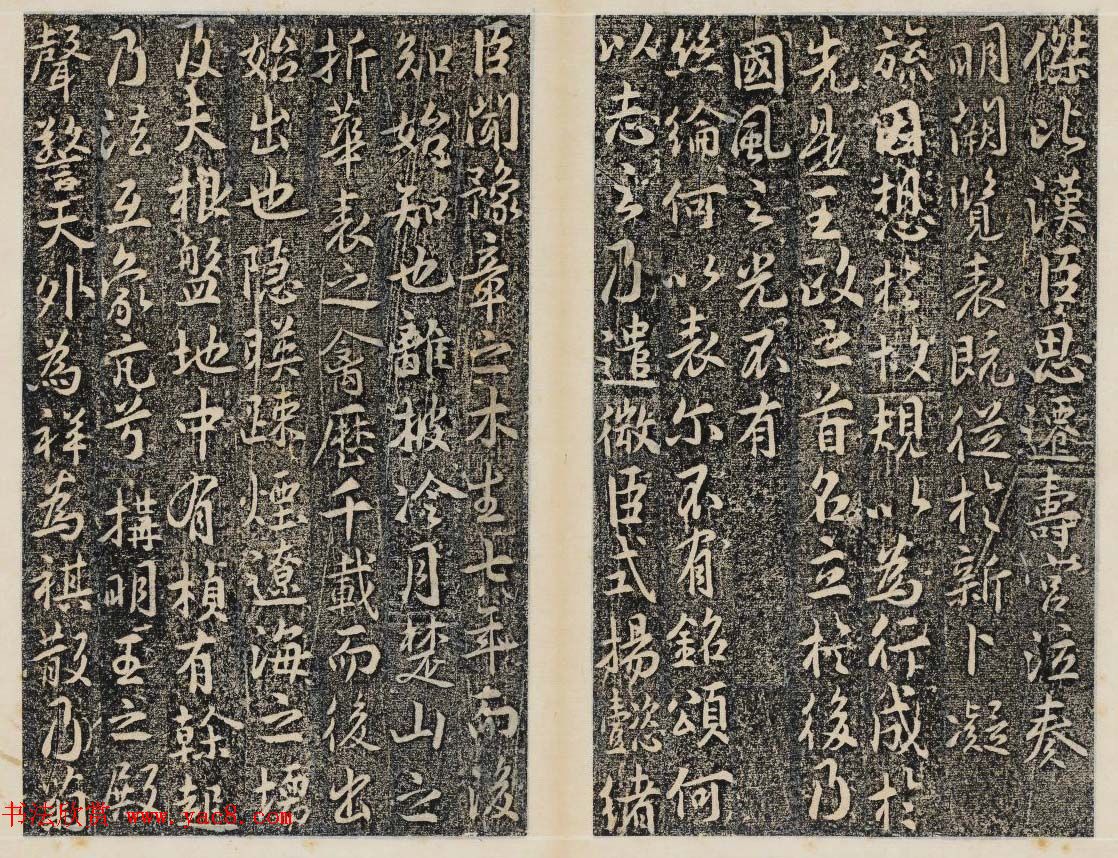 傑比漢臣思遷壽宮泣奏
明闕覽表既従於新卜凝
旒固想於故規以為行成於
先是王政之首名立於後乃
國風之光不有
絲綸何以表尔不有銘頌何
以志之乃遣微臣式揚懿緒
臣聞豫章之木生七年而後
知始知也離披冷月楚山之
折華表之禽歷千載而後出
始出也隐暎踈煙遼海之壖
及夫根盤地中有楨有幹起
乃法互象亢兮搆明王之殿
聲警天外為祥為祺散乃為
书法欣赏 www.yac8.com